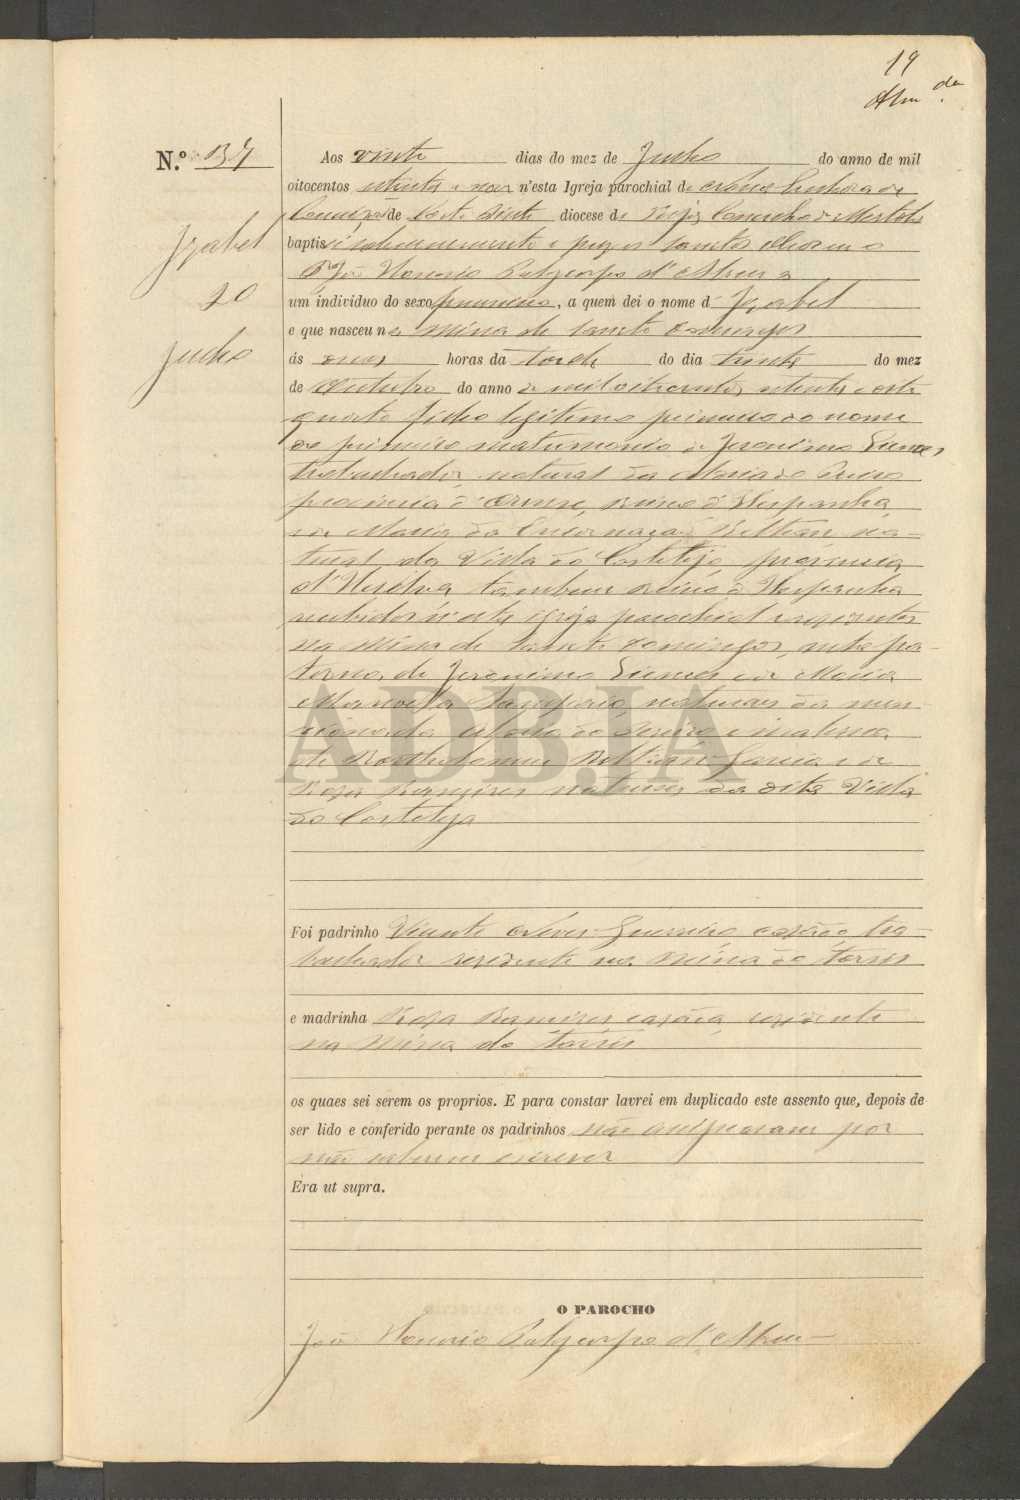 19
Alm da
N.º 137
Aos vinte dias do mez de Junho do anno de mil
oitocentos setenta e nove n'esta Igreja parochial de Nossa Senhora da
Conceição de Corte Pinto diocese de Beja Concelho de Mertola
baptisei solemnemente e puz os santos oleos eu o
João Honorio Polycarpo d'Abreu a
Izabel
20
Junho
um individuo do sexo feminino, a quem dei o nome d Izabel
e que nasceu na Mina de Sancto Domingos
ás horas da tarde do dia do mez
de Outubro do anno de mil oitocentos setenta e oito
quarto filho legitimo primeiro do nome
do primeiro matrimonio de Jeronimo
trabalhador, natural da
provincia d' Reino d'Hespanha
e de Maria da Encarnação Beltran na-
tural da Villa do Castilejo provincia
d'Huelva tambem reino d'Hespanha
recebidos n'esta igreja parochial residentes
na Mina de Sancto Domingos, neta pa-
terna de Jeronimo e de Maria
Manoela naturaes da men-
cionada e materna
de Bartholomeu Beltran Garcia e de
Roza Ramires naturaes da dita Villa
do Castilejo
Foi padrinho Vicente Neves Guerreiro casado tra-
balhador residente na Mina do
e madrinha Roza Ramires casada residente
na Mina do
os quaes sei serem os proprios. E para constar lavrei em duplicado este assento que, depois de
ser lido e conferido perante os padrinhos não assignaram por
não saberem escrever
Era ut supra.
O PAROCHO
João Honorio Polycarpo d'Abreu
ADBJA